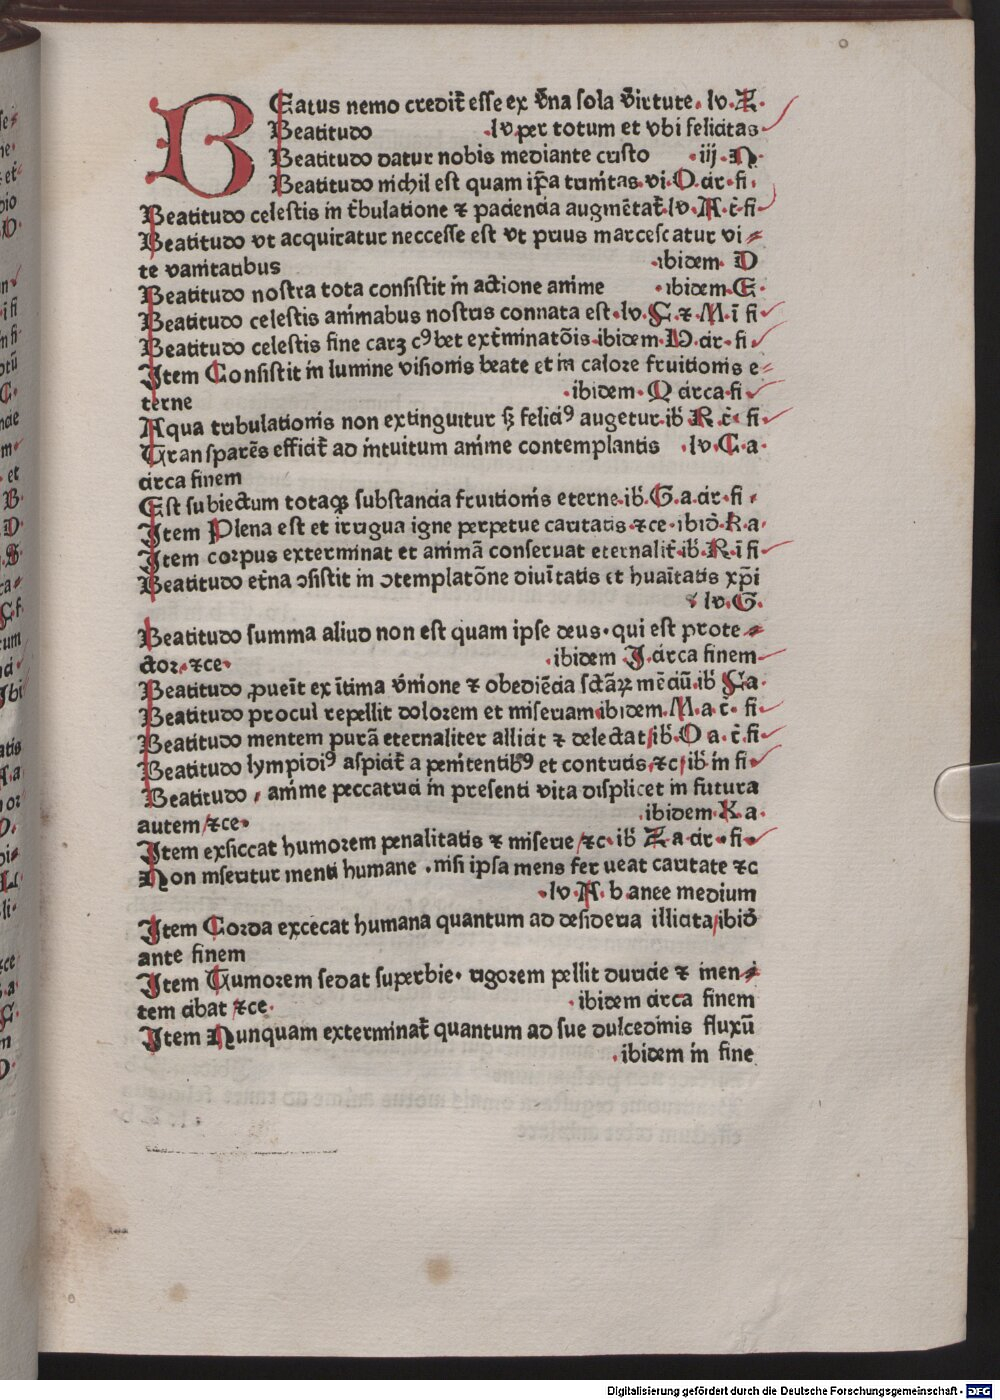 BEatus nemo credit̃ esse ex v̄na sola v̄irtute. lv. Z.
Beatitudo .lv. per totum et vbi felicitas
Beatitudo datur nobis mediante cristo .iij. N.
Beatitudo nichil est quam ip̄a trinitas. vi. O. cir. fi.
Beatitudo celestis in t̄bulatione ⁊ paciencia augmētat̃. lv. A. c̄. fi
Beatitudo vt acquiratur neccesse est vt prius marcescatur vi⸗
te vanitatibus .ibidem. D
Beatitudo nostra tota consistit in actione anime .ibidem. E.
Beatitudo celestis animabus nostris connata est. lv. ⁊. M. ī fi
Beatitudo celestis fine carꝫ cꝰ bet ext̄minatōis. ibidem. cir. fi
Item Consistit in lumine visionis beate et in calore fruitionis e⸗
terne .ibidem. Q circa. fi.
Aqua tribulationis non extinguitur sꝫ feliciꝰ augetur. ib̄. R. c̄. fi
Transparēs efficit̃ ad intuitum anime contemplantis .lv. C. a.
circa finem
Est subiectum totaqꝫ substancia fruitionis eterne. ib̄. G. a. cir. fi.
Item Plena est et irrigua igne perpetue caritatis. ⁊ce. ibid̄. K a.
Item corpus exterminat et animā conseruat eternalit̃. ib̄. R. ī fi
Beatitudo et̄na ↄsistit in ↄtemplatōne diuītatis et huaītatis xp̄i
lv. G.
Beatitudo summa aliud non est quam ipse deus. qui est prote⸗
ctor. ⁊ce. .ibidem J. circa finem
Beatitudo ꝓueīt ex ītima v̄nione ⁊ obediēcia sctāꝝ mēciū. ib̄ a.
Beatitudo procul repellit dolorem et miseriam ibidem. M. a c̄. fi
Beatitudo mentem purā eternaliter allicit ⁊ delectat/ib̄. O a. c̄. fi
Beatitudo lympidiꝰ aspicit̃ a penitentibꝰ et contritis, ⁊c/ib̄. in fi
Beatitudo, anime peccatrici in presenti vita displicet in futura
autem/⁊ce. .ibidem. X a.
Item exsiccat humorem penalitatis ⁊ miserie/⁊c. ib̄ Z. a. cir. fi.
Non inseritur menti humane . nisi ipsa mens ferueat caritate ⁊c
.lv. A. b. ance medium
Item Corda excecat humana quantum ad desideria illicita/ibid̄
ante finem
Item Tumorem sedat superbie. rigorem pellit duricie ⁊ inen⸗
tem cibat ⁊ce. .ibidem circa finem
Item Nunquam exterminat̃ quantum ad sue dulcedinis fluxū
.ibidem in fine
Digitalisierung gefördert durch die Deutsche Forschungsgemeinschaft - DFG